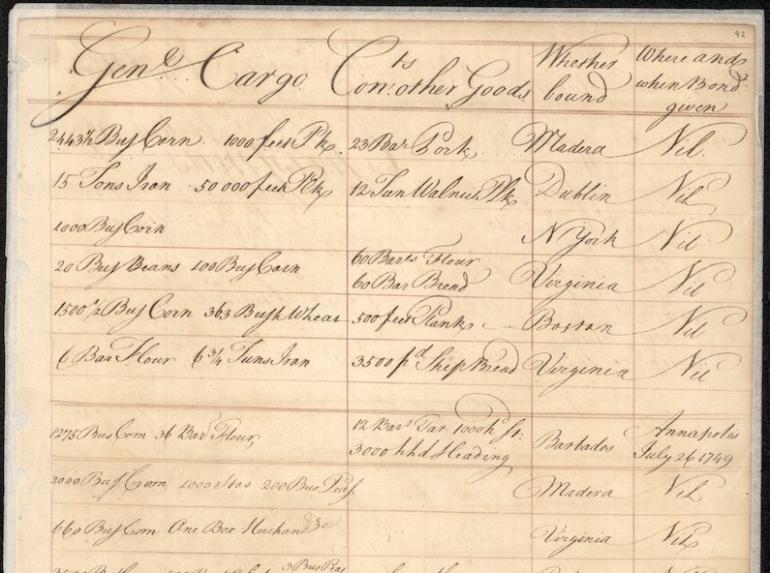 92
Genl Cargo Conts other Goods Whether bound Where and when Bond given
2443½ Bus Corn 1000 feet Plk 23 Bar Pork Madera Nil
15 Tons Iron 50000 feet Plk 12 Tun Walnut Plk Dublin Nil
1000 Bus Corn N York Nil
20 Bus Beans 100 Bus Corn 60 Bars Flour 60 Bar Bread Virginia Nil
1500½ Bus Corn 363 Bush Wheat 500 feet Plank Boston Nil
6 Bar Flour 6¾ Tuns Iron 3500 pd Ship Bread Virginia Nil
1275 Bus Corn 36 Bar Flour 12 Bars Tar 3000 hhd Heading Barbados Annapolis July 26 1749
2000 Bus Corn 200 Bus Madera Nil
660 Bus Corn One Box Virginia Nil
3 Bus